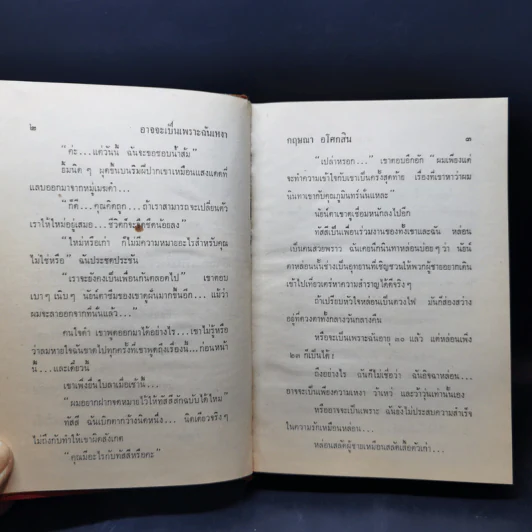 ๒ อาจจะเป็นเพราะฉันเหงา
“ค่ะ...แต่วันนี้ ฉันจะขอชอบน้ำส้ม”
ยิ้มนิด ๆ ผุดขึ้นบนริมฝีปากเขาเหมือนแสงแดดที่
แลบออกมาจากหมู่เมฆดำ...
“ก็ดี...คุณคิดถูก...ถ้าเราสามารถจะเปลี่ยนตัว
เราให้ใหม่อยู่เสมอ...ชีวิตก็จะจืดชืดน้อยลง”
“ใหม่หรือเก่า ก็ไม่มีความหมายอะไรสำหรับคุณ
ไม่ใช่หรือ” ฉันประชดประชัน
“เราจะยังคงเป็นเพื่อนกันตลอดไป” เขาตอบ
เบาๆ เนิบๆ นัยน์ตาซึมของเขาดูฝันมากขึ้นอีก... แม้ว่า
ผมจะลาออกจากที่นั่นแล้ว...”
คนใจดำ เขาพูดออกมาได้อย่างไร...เขาไม่รู้หรือ
ว่าลมหายใจฉันขาดไปทุกครั้งที่เขาพูดถึงเรื่องนี้...ก่อนหน้า
นี้...และเดี๋ยวนี้
เขาเพิ่งยื่นใบลาเมื่อเช้านี้...
“ผมอยากฝากจดหมายไว้ให้ทัสสีสักฉบับได้ไหม”
ทัสสี ฉันเบิกตากว้างนิดหนึ่ง... นิดเดียวจริงๆ
ไม่ถึงกับทำให้เขาผิดสังเกต
“คุณมีอะไรกับทัสสีหรือคะ”
กฤษณา อโศกสิน ๓
“เปล่าหรอก...” เขาตอบอีกอัก “ผมเพียงแต่
จะทำความเข้าใจกับเขาเป็นครั้งสุดท้าย เรื่องที่เขาหาว่าผม
นินทาเขากับคุณภูมินทร์นั่นแหละ”
นัยน์ตาเขาดูเชื่อมหนักลงไปอีก
ทัสสีเป็นเพื่อนร่วมงานของทั้งเขาและฉัน หล่อน
เป็นคนสวยพราว ฉันเคยนึกนินทาหล่อนบ่อยๆ ว่า นัยน์
ตาหล่อนนั้นช่างเป็นอุทยานที่เชิญชวนให้พวกผู้ชายอยากเดิน
เข้าไปเที่ยวเตร่หาความสำราญได้ดีจริงๆ
ถ้าเปรียบหัวใจหล่อนเป็นดวงไฟ มันก็ส่องสว่าง
อยู่ที่ดวงตาทั้งกลางวันกลางคืน
หรือจะเป็นเพราะฉันอายุ ๓๐ แล้ว แต่หล่อนเพิ่ง
๒๓ ก็เป็นได้!
ถึงอย่างไร ฉันก็ไม่เชื่อว่า ฉันอิจฉาหล่อน...
อาจจะเป็นเพียงความเหงา ว้าเหว่ และว้าวุ่นเท่านั้นเอง
หรืออาจจะเป็นเพราะ ฉันยังไม่ประสบความสำเร็จ
ในความรักเหมือนหล่อน...
หล่อนสลัดผู้ชายเหมือนสลัดเสื้อตัวเก่า...